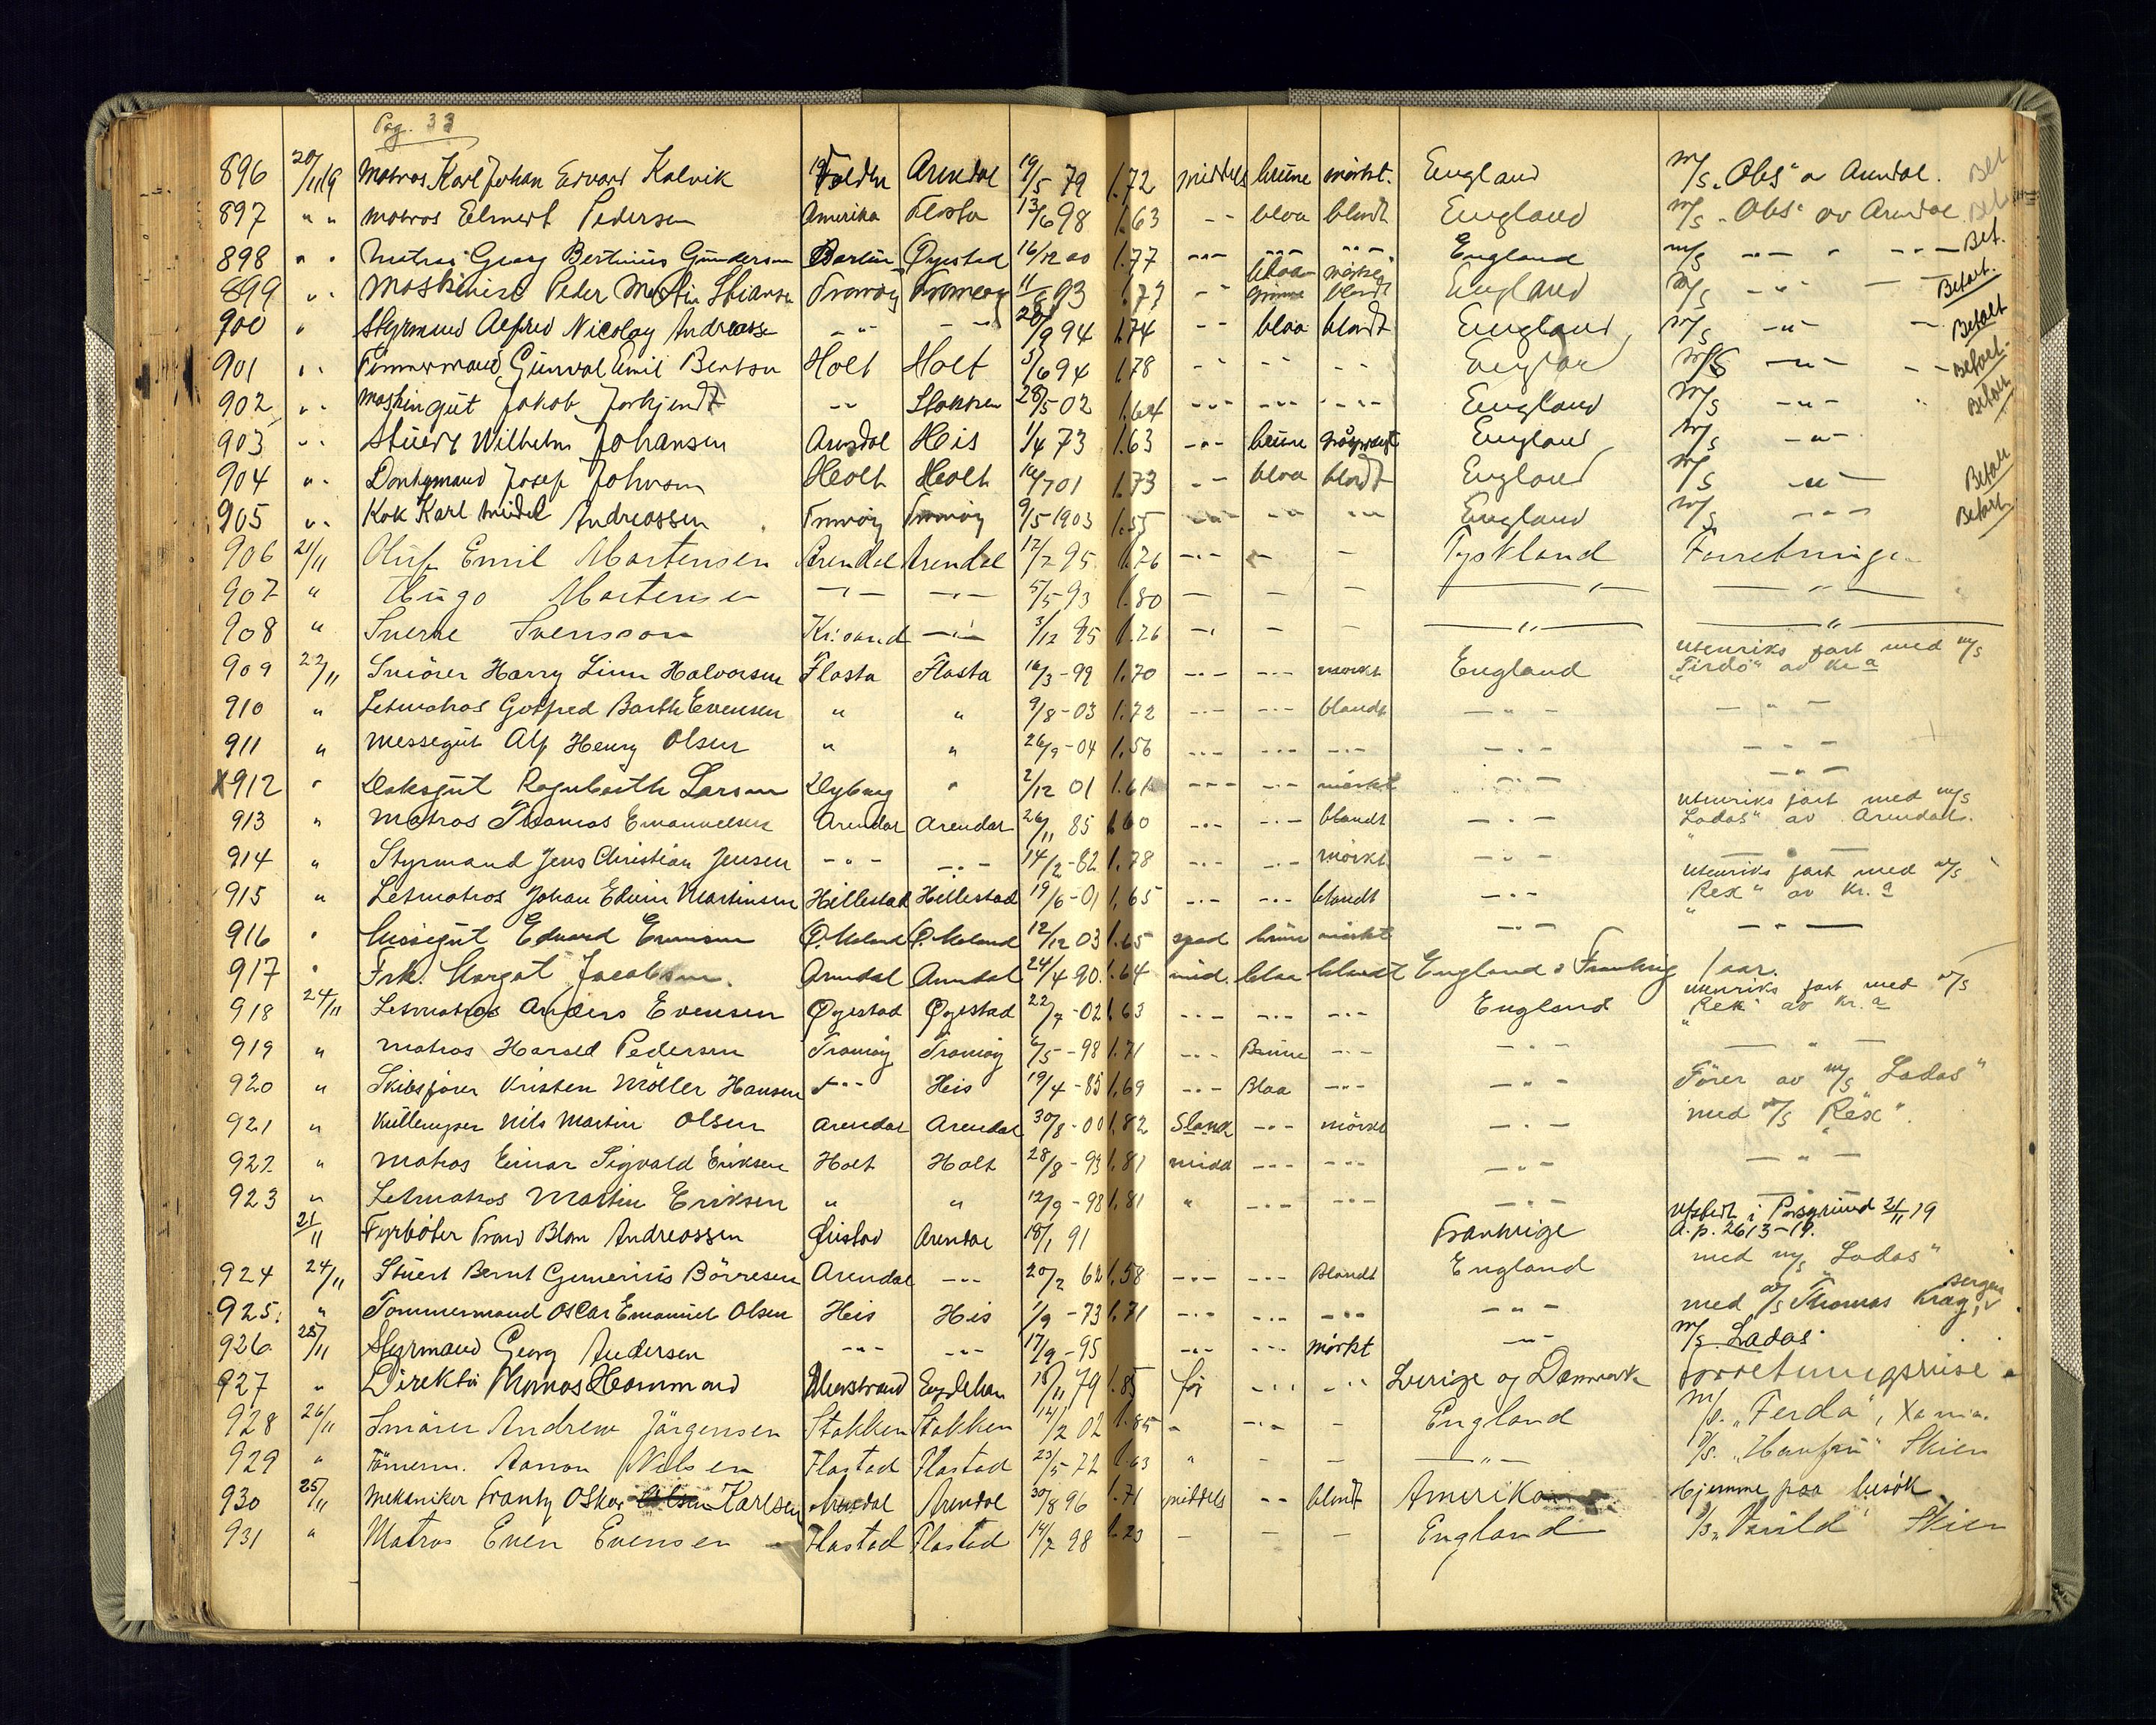 Pag. 33
896 20/11 19 Matros Karl Johan Edvard Kalvik Arendal 19/5 79 1.72 middels brune mörkt. England M/S "Obs" a Arendal. Bet
897 " " Matros Elmert Pedersen Amerika Flosta 13/6 98 1.63 - - blaa blondt England M/S "Obs" av Arendal Bet
898 " " Matros Georg Bertinius Gundersen Öyestad 16/12 00 1.77 -"- -"- -"- England M/S -"- " -"- Bet.
899 " " Maskinist Peder Martin Tromöy Tromöy 11/8 93 1.77 - " blaa mörke blondt England M/S -"- - Betalt.
900 " Styrmand Alfred Nicolay Andreassen -"- -"- 28/9 94 1.74 - - blaa blondt England M/S -"- - Betalt
901 " " Tömmermand Gunval Emil Bentsen Holt Holt 3/6 94 1.78 - - - - - - England M/S -"- - - Betalt.
902 " " Maskingut Jakob -"- Stokken 28/5 02 1.64 -"- -"- -"- England M/S -"- " Betalt
903 " " Stuert Wilhelm Johansen Arendal His 1/4 73 1.63 -"- brune England M/S -"-
904 " " Donkymand Josef Johnsen Holt Holt 16/7 01 1.73 - - blaa blondt England M/S -"- Betalt
905 " " Kok Karl Andreassen Tromöy Tromöy 9/5 1903 1.55 -"- -"- -"- England M/S -"- Betalt.
906 21/11 Oluf Emil Martensen Arendal Arendal 12/7 95 1.76 -"- - - Tyskland Forretninger
907 " Hugo Mortensen -"- -"- 5/5 93 1.80 - - - -"- -"-
908 " Sverre Svensson Kr.sand -"- 3/12 95 1.76 -" - - -"- -"-
909 22/11 Smörer Harry Linn Halvorsen Flosta Flosta 16/3-99 1.70 -"- -"- mörkt England Utenriks fart med M/S "Firdö" av Kr.a
910 " Letmatros Gotfred Barth Evensen " " 9/8-03 1.72 -"- -"- blondt -"- -"-
911 " Messegut Alf Henry Olsen " " 26/9-04 1.56 -"- -"- -"- -"- -"-
X912 " Dæksgut Larsen Dybvag " 2/12 01 1.61 -"- -"- mörkt -"- -"-
913 " Matros Thomas Emanuelsen Arendal Arendal 26/11 85 1.60 -"- -"- blondt -"- Utenriks fart med M/S "Ladas" av Arendal.
914 " Styrmand Jens Christian Jensen -"- -"- 14/2-82 1.78 -"- -"- mörkt -"- -"-
915 " Letmatros Johan Edvin Martinsen Hillestad Hillestad 19/6-01 1.65 -"- -"- blondt -"- Utenriks fart med M/S "Rex" av Kr.a
916 " Messegut Edvard Ö. Moland Ö. Moland 12/12 03 1.65 spad brune mörkt -"- -"-
917 " Frk. Margot Jacobsen. Arendal Arendal 24/4 90. 1.64 mid. blaa blondt England 1 aar.
918 24/11 Letmatros Anders Evensen Öyestad Öyestad 22/7-02 1.63 -"- -"- -"- England Utenriks fart med M/S "Rex" av Kr.a
919 " Matros Harald Pedersen Tromöy Tromöy 6/5-98 1.71 -"- Brune -"- -"- -"-
920 " Skibsförer Kristen Möller Hansen -"- His 19/4-85 1.69 -"- Blaa -"- -"- Förer av M/S "Ladas"
921 " Kullemper Nils Martin Olsen Arendal Arendal 30/8-00 1.82 Slank -"- mörkt -"- med M/S "Rex".
922 " Matros Einar Sigvald Eriksen Holt Holt 28/8-93 1.81 midd -"- -"- -"- -"-
923 " Letmatros Martin Eriksen " " 12/9-98 1.81 " -"- -"- -"- -"-
21/11 Fyrböter Andreassen Arendal 18/1 91 Frankrige Utstedt i Porsgrund 21/11 19 a.p. 2613-19.
924 24/11 Stuert Bernt Gunerius Börresen Arendal -"- 20/2 62 1.58 -"- -"- Blondt England med M/S "Ladas"
925. " Tömmermand Oscar Emanuel Olsen His His 1/9-73 1.71 -"- -"- -"- -"- med D/S Thomas Krag, Bergen
926 25/11 Styrmand Georg Andersen -"- -"- 17/9-95 -"- -"- mörkt -"- M/S Ladas.
927 " Direktör Thomas Hammond 18/11 79 1.85 för -"- -"- Sverige og Danmark Forretningsreise
928 26/11 Smörer Andrew Jörgensen Stokken Stokken 14/2 02 1.85 " -"- - England M/S. "Ferda", Xania.
929 " Tömerm. Aanon Nilsen Flastad Flastad 23/5 72 1.63 " - - -"- Skien
930 25/11 Mekaniker Frantz Oskar Karlsen Arendal Arendal 30/8 96 1.71 middels - - blondt Amerika Hjemme paa besök
931 " Matros Even Evensen Flastad Flastad 14/7 98 1.73 - - - England Skien